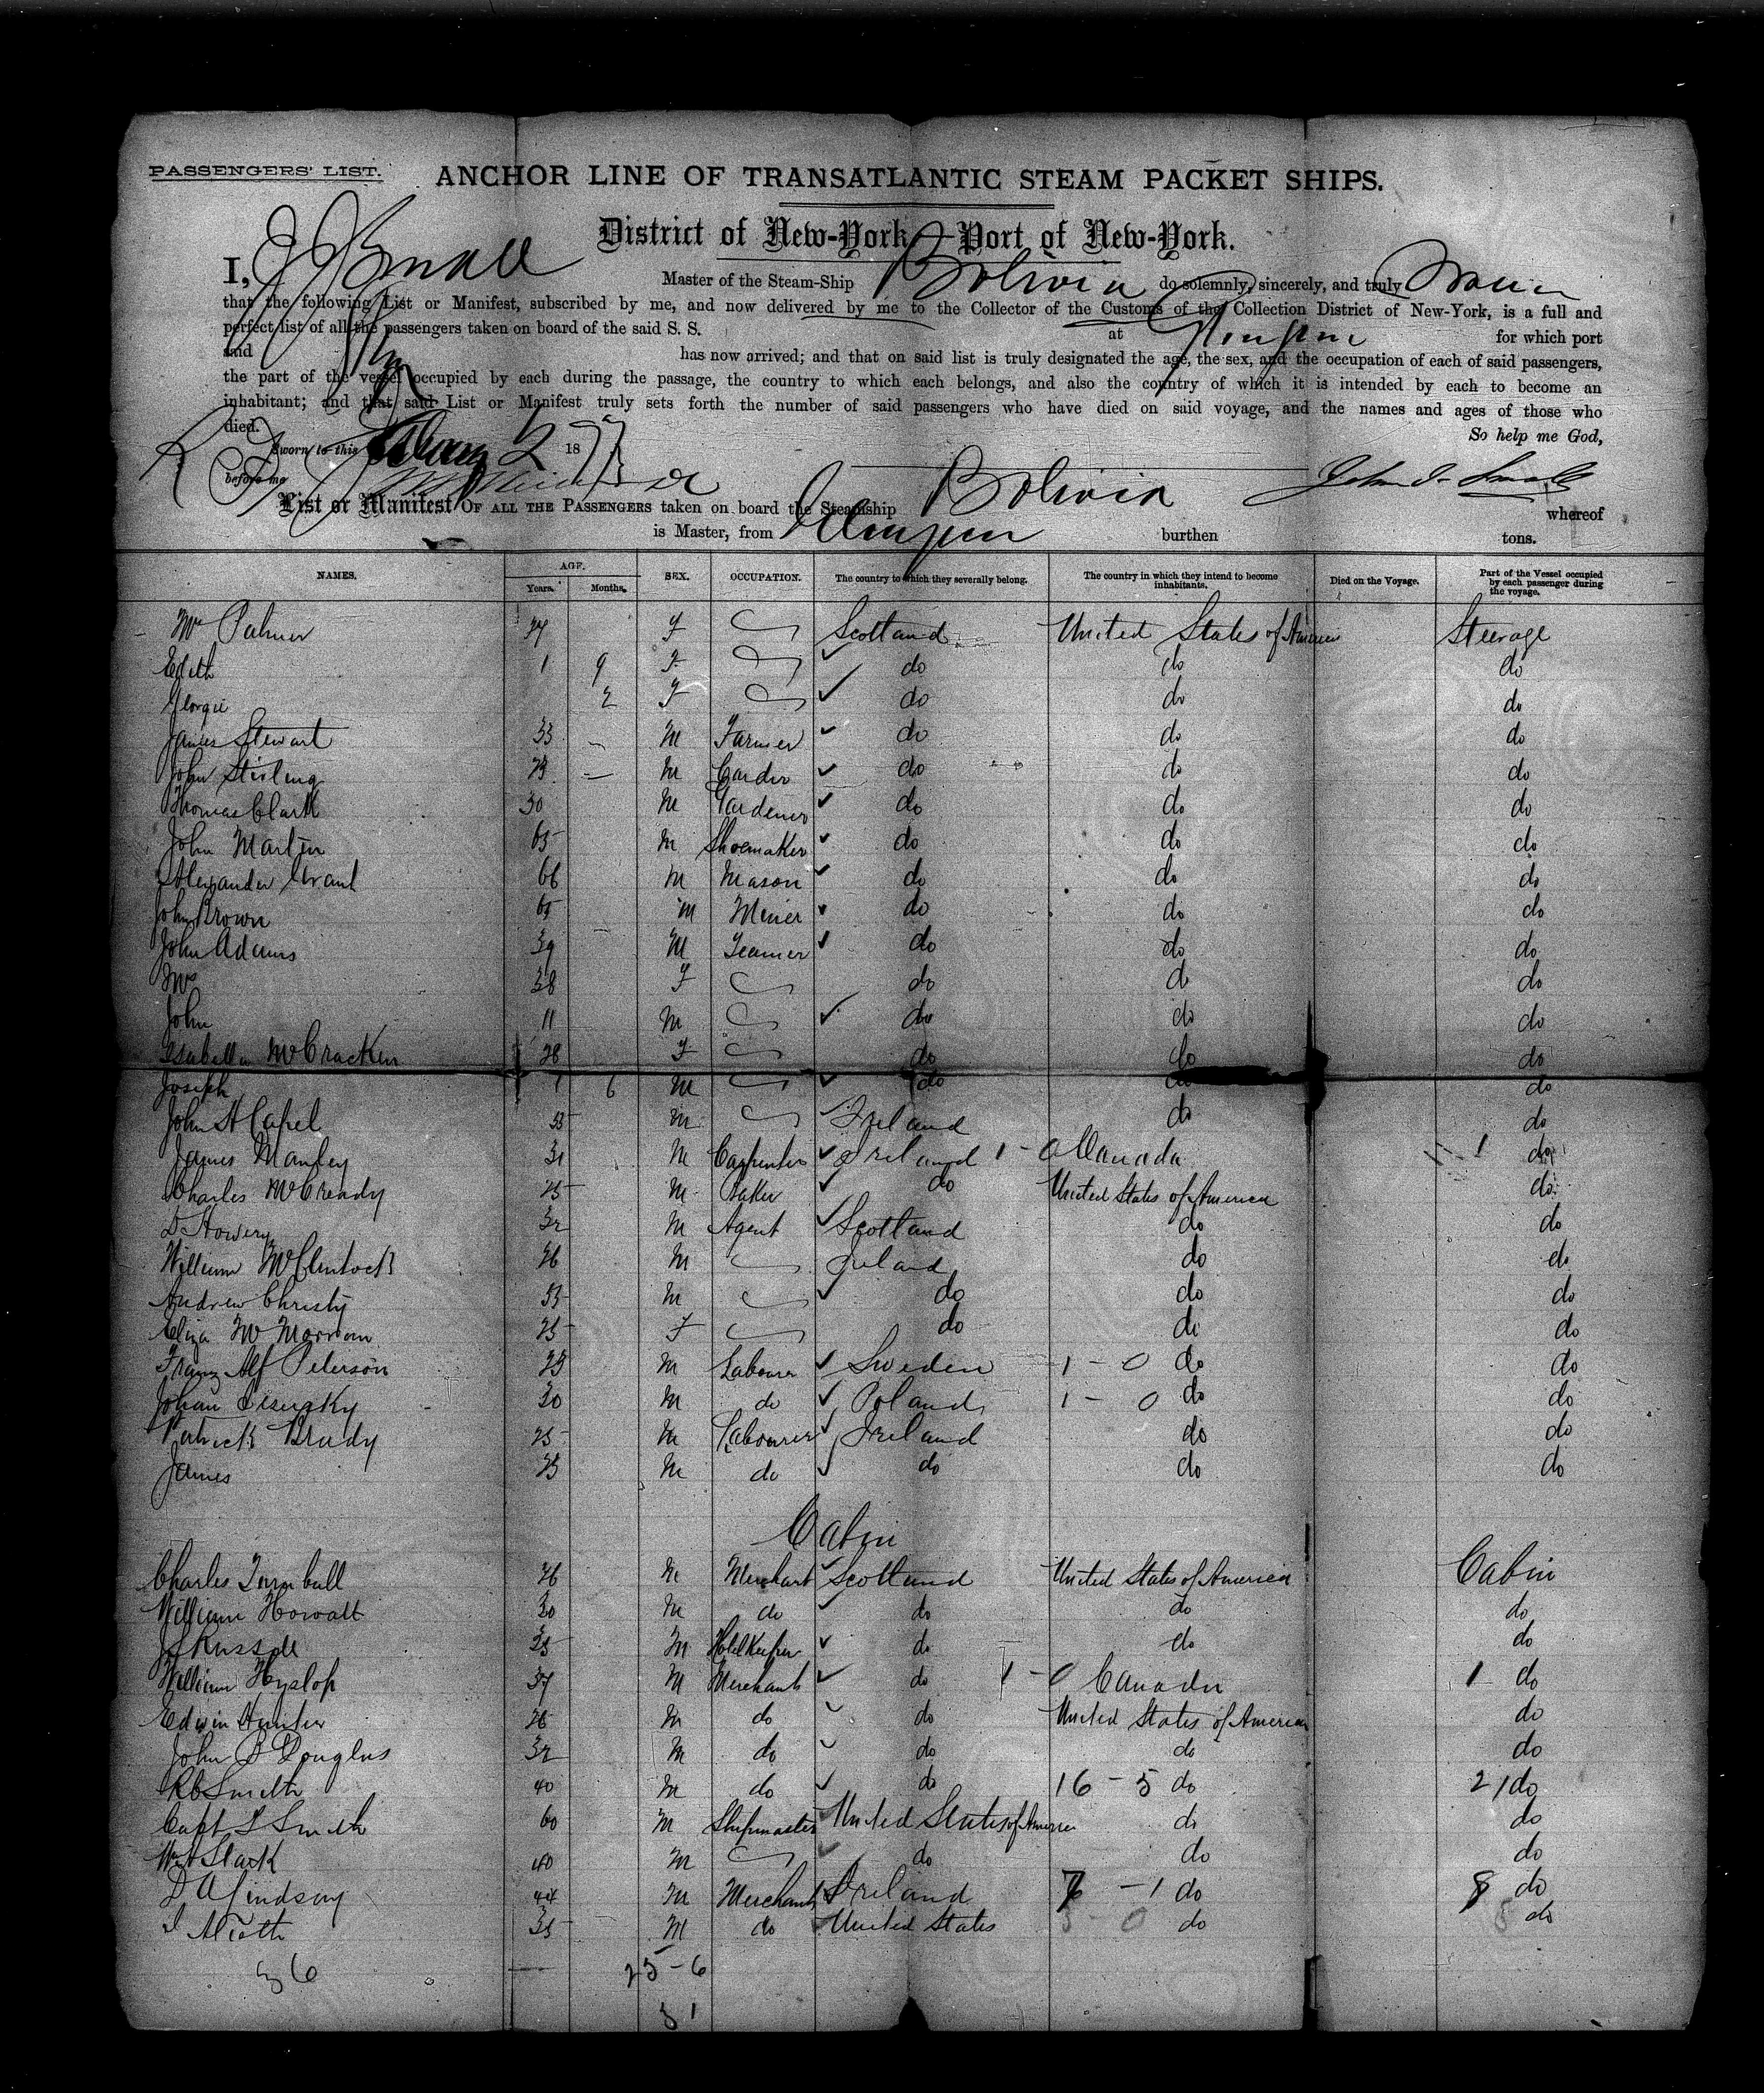 PASSENGERS' LIST.
ANCHOR LINE OF TRANSATLANTIC STEAM PACKET SHIPS.
District of New-York—Port of New-York.
I, J J Small Master of the Steam-Ship Bolivia do solemnly, sincerely, and truly Swear
that the following List or Manifest, subscribed by me, and now delivered by me to the Collector of the Customs of the Collection District of New-York, is a full and
perfect list of all the passengers taken on board of the said S. S. at Glasgow for which port
said has now arrived; and that on said list is truly designated the age, the sex, and the occupation of each of said passengers,
the part of the vessel occupied by each during the passage, the country to which each belongs, and also the country of which it is intended by each to become an
inhabitant; and that said List or Manifest truly sets forth the number of said passengers who have died on said voyage, and the names and ages of those who
died.
So help me God,
Sworn to this 2 1877
before me John J. Small
List or Manifest OF ALL THE PASSENGERS taken on board the Steamship Bolivia whereof
is Master, from Glasgow burthen tons.
NAMES. AGE. Years. Months. SEX. OCCUPATION. The country to which they severally belong. The country in which they intend to become inhabitants. Died on the Voyage. Part of the Vessel occupied by each passenger during the voyage.
Mrs Palmer 27 F Scotland United States of America Steerage
Edith 1 9 F do do do
Georgie 2 F do do do
James Stewart 33 M Farmer do do do
John Stirling 23 M Carder do do do
Thomas Clark 30 M Gardener do do do
John Martin 65 M Shoemaker do do do
Alexander Grant 66 M Mason do do do
John Brown 65 M Miner do do do
John Adams 39 M do do do
Mrs 38 F do do do
John 11 M do do do
Isabella McCracken 28 F do do do
Joseph 1 6 M do do do
John A Capel M Ireland do do
James Manley 31 M Carpenter Ireland 1 - 0 Canada 1 do
Charles McCready 25 M Baker do United States of America do
D Howery 32 M Agent Scotland do do
William McClintock 26 M Ireland do do
Andrew Christy M do do do
Eliza McMorrow 25 F do do do
Franz Alf Peterson 23 M Labourer Sweden 1 - 0 do do
Johan 20 M do Poland 1 - 0 do do
Patrick Brady 25 M Labourer Ireland do do
James 23 M do do do do
Cabin
Charles Turnbull 26 M Merchant Scotland United States of America Cabin
William Howatt 30 M do do do do
J Russell 35 M Hotel Keeper do do do
William Hyslop 37 M Merchant do 1 - 0 Canada 1 do
Edwin Hunter 26 M do do United States of America do
John B Douglas 32 M do do do do
R C Smith 40 M do do 16 - 5 do 21 do
Capt Smith 60 M Shipmaster United States of America do do
Wm Slack 40 M do do do
D A Lindsay 44 M Merchant Ireland 7 - 1 do 8 do
35 M do United States 5 - 0 do do
36 25 - 6
31